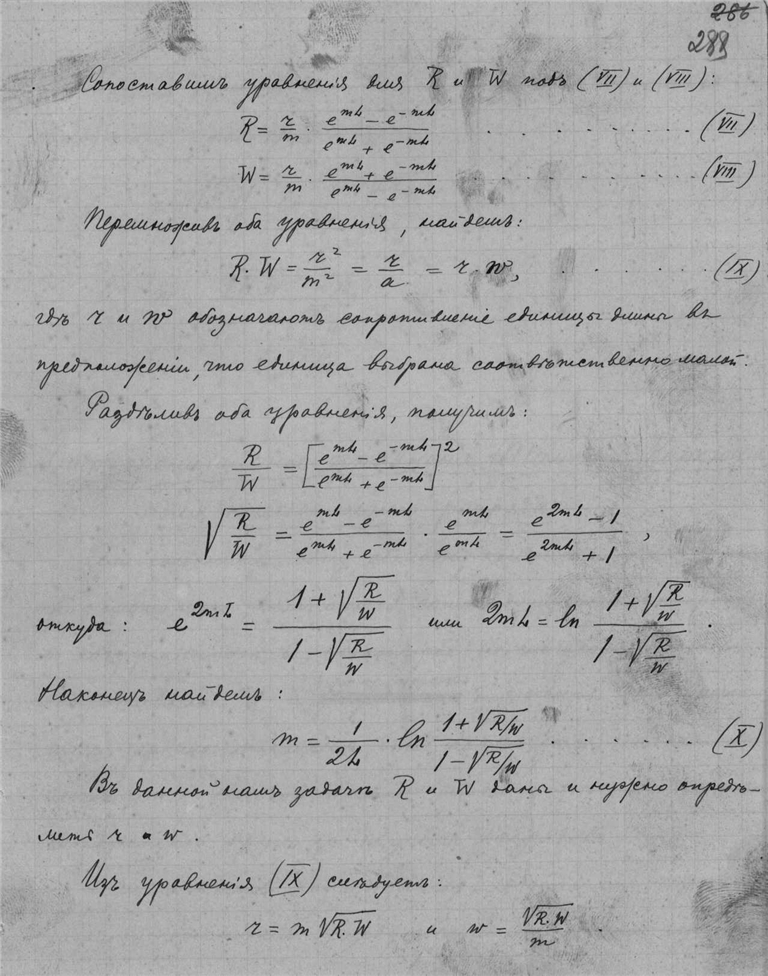 286
288
Сопоставимъ уравненія для R и W подъ (VII) и (VIII):
R = r/m · (e^{mL} − e^{−mL})/(e^{mL} + e^{−mL}) . . . . . . . . . (VII)
W = r/m · (e^{mL} + e^{−mL})/(e^{mL} − e^{−mL}) . . . . . . . . . (VIII)
Перемноживъ оба уравненія, найдемъ:
R·W = r²/m² = r/a = r·w, . . . . . . . (IX)
гдѣ r и w обозначаютъ сопротивленіе единицы длины въ
предположеніи, что единица выбрана соотвѣтственно малой.
Раздѣливъ оба уравненія, получимъ:
R/W = [(e^{mL} − e^{−mL})/(e^{mL} + e^{−mL})]²
√(R/W) = (e^{mL} − e^{−mL})/(e^{mL} + e^{−mL}) · e^{mL}/e^{mL} = (e^{2mL} − 1)/(e^{2mL} + 1),
откуда: e^{2mL} = (1 + √(R/W))/(1 − √(R/W)) или 2mL = ln (1 + √(R/W))/(1 − √(R/W)).
Наконецъ найдемъ:
m = 1/2L · ln (1 + √R/W)/(1 − √R/W) . . . . . . . (X)
Въ данной намъ задачѣ R и W даны и нужно опредѣ-
лить r и w.
Изъ уравненія (IX) слѣдуетъ:
r = m √R·W и w = √R·W/m.